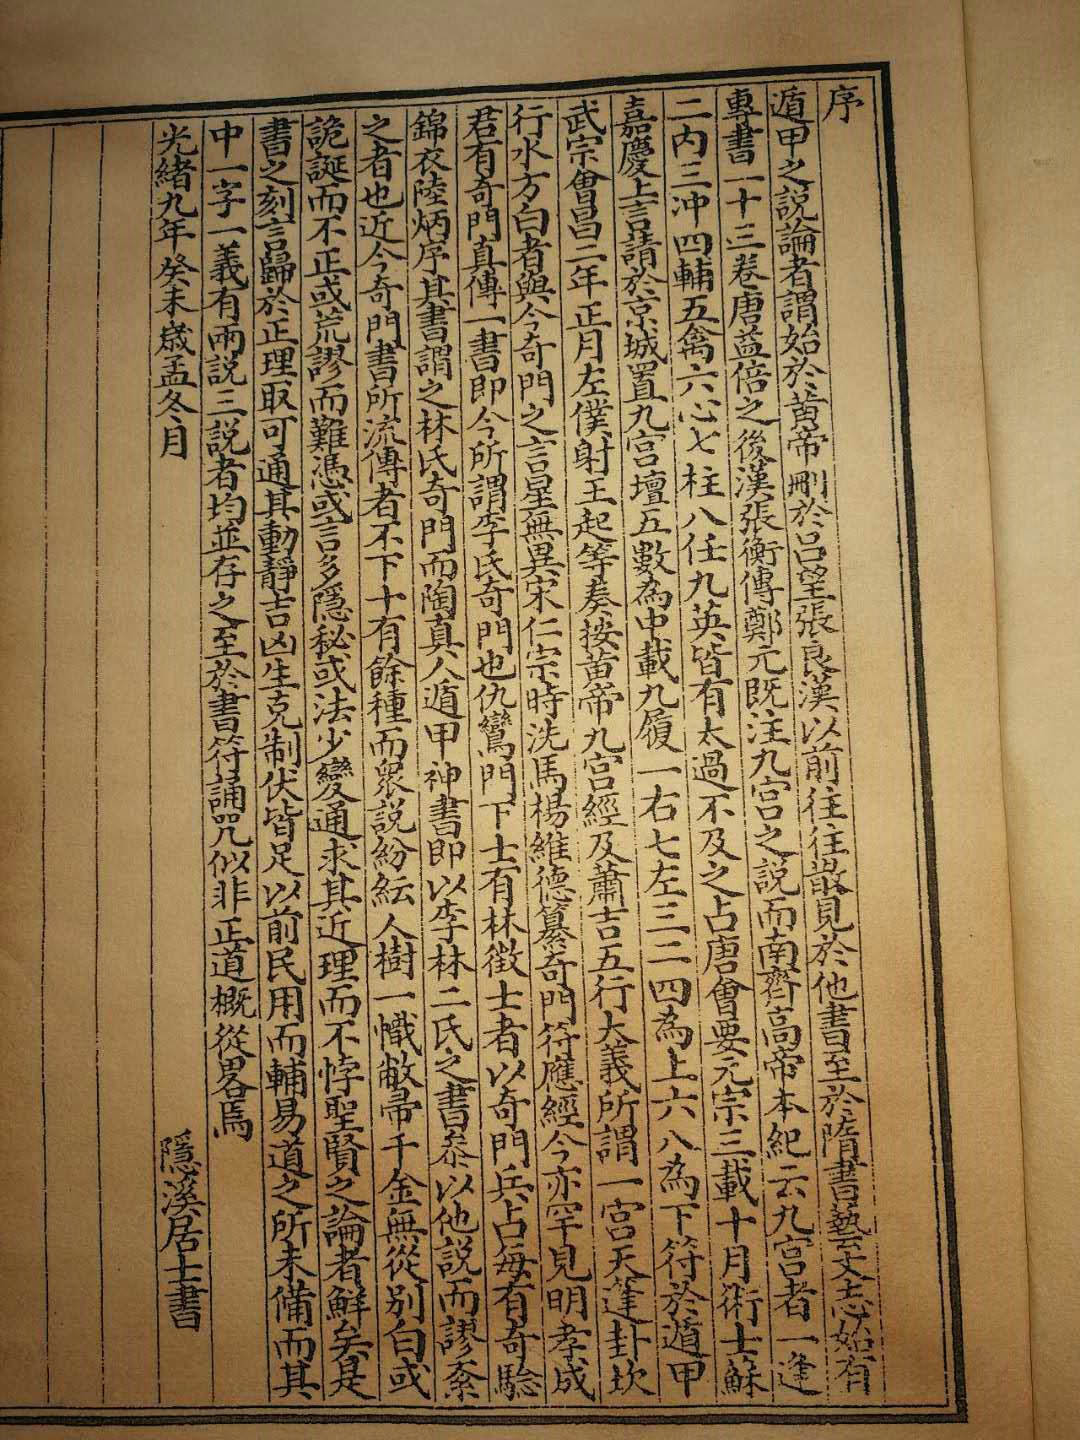 序
遁甲之説論者謂始於黄帝刪於呂望張良漢以前往往散見於他書至於隋書藝文志始有
專書一十三卷唐益倍之後漢張衡傳鄭元既注九宮之説而南齊高帝本紀云九宮者一逢
二内三冲四輔五禽六心七柱八任九英皆有太過不及之占唐會要元宗三載十月術士蘇
嘉慶上言請於京城置九宮壇五數為中載九履一右七左三二四為上六八為下符於遁甲
武宗會昌二年正月左僕射王起等奏按黄帝九宮經及蕭吉五行大義所謂一宮天蓬卦坎
行水方白者與今奇門之言星無異宋仁宗時洗馬楊維德纂奇門符應經今亦罕見明孝成
君有奇門真傳一書即今所謂李氏奇門也仇鸞門下士有林徵士者以奇門兵占每有奇驗
錦衣陸炳序其書謂之林氏奇門而陶真人遁甲神書即以李林二氏之書叅以他説而謬紊
之者也近今奇門書所流傳者不下十有餘種而衆説紛紜人樹一幟敝帚千金無從别白或
詭誕而不正或荒謬而難憑或言多隱秘或法少變通求其近理而不悖聖賢之論者鮮矣是
書之刻言歸於正理取可通其動靜吉凶生克制伏皆足以前民用而輔易道之所未備而其
中一字一義有兩説三説者均並存之至於書符誦咒似非正道概從畧焉
光緒九年癸未嵗孟冬月
隱溪居士書